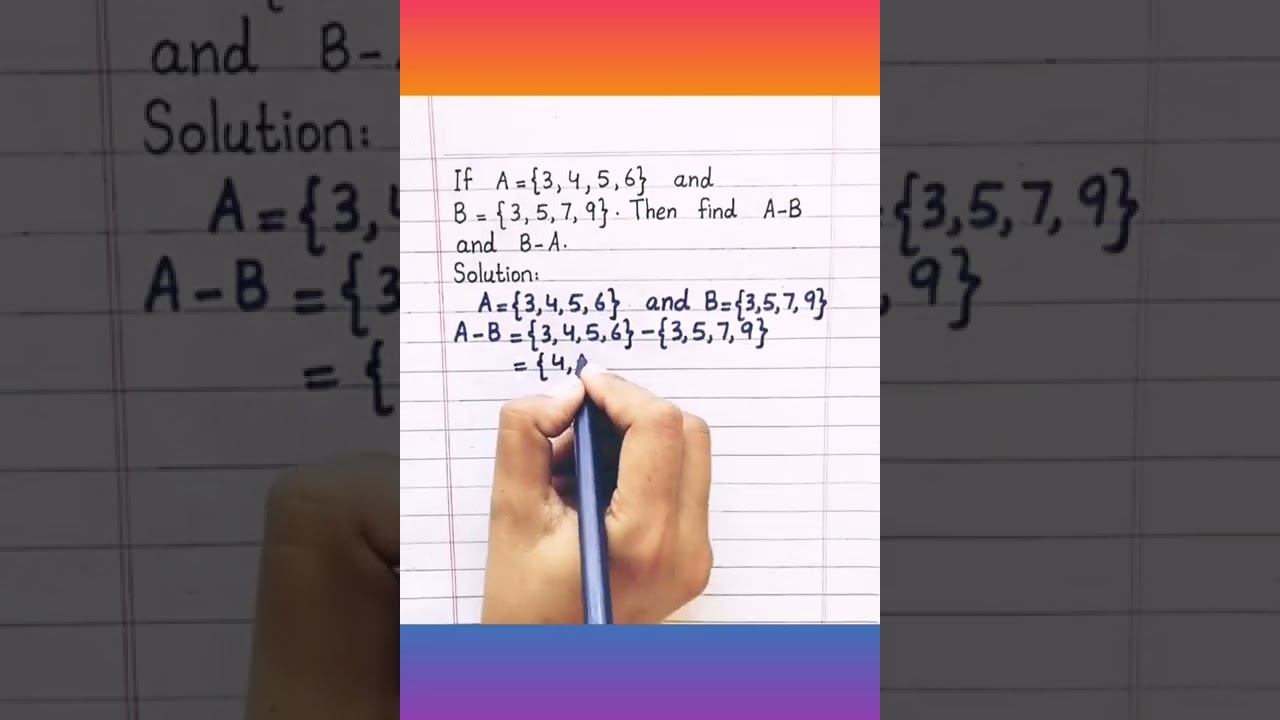 If A={3, 4, 5, 6} and
B = {3, 5, 7, 9}. Then find A-B
and B-A.
Solution:
A={3,4,5,6} and B={3,5,7,9}
A-B ={3,4,5,6}-{3,5,7,9}
= {4,